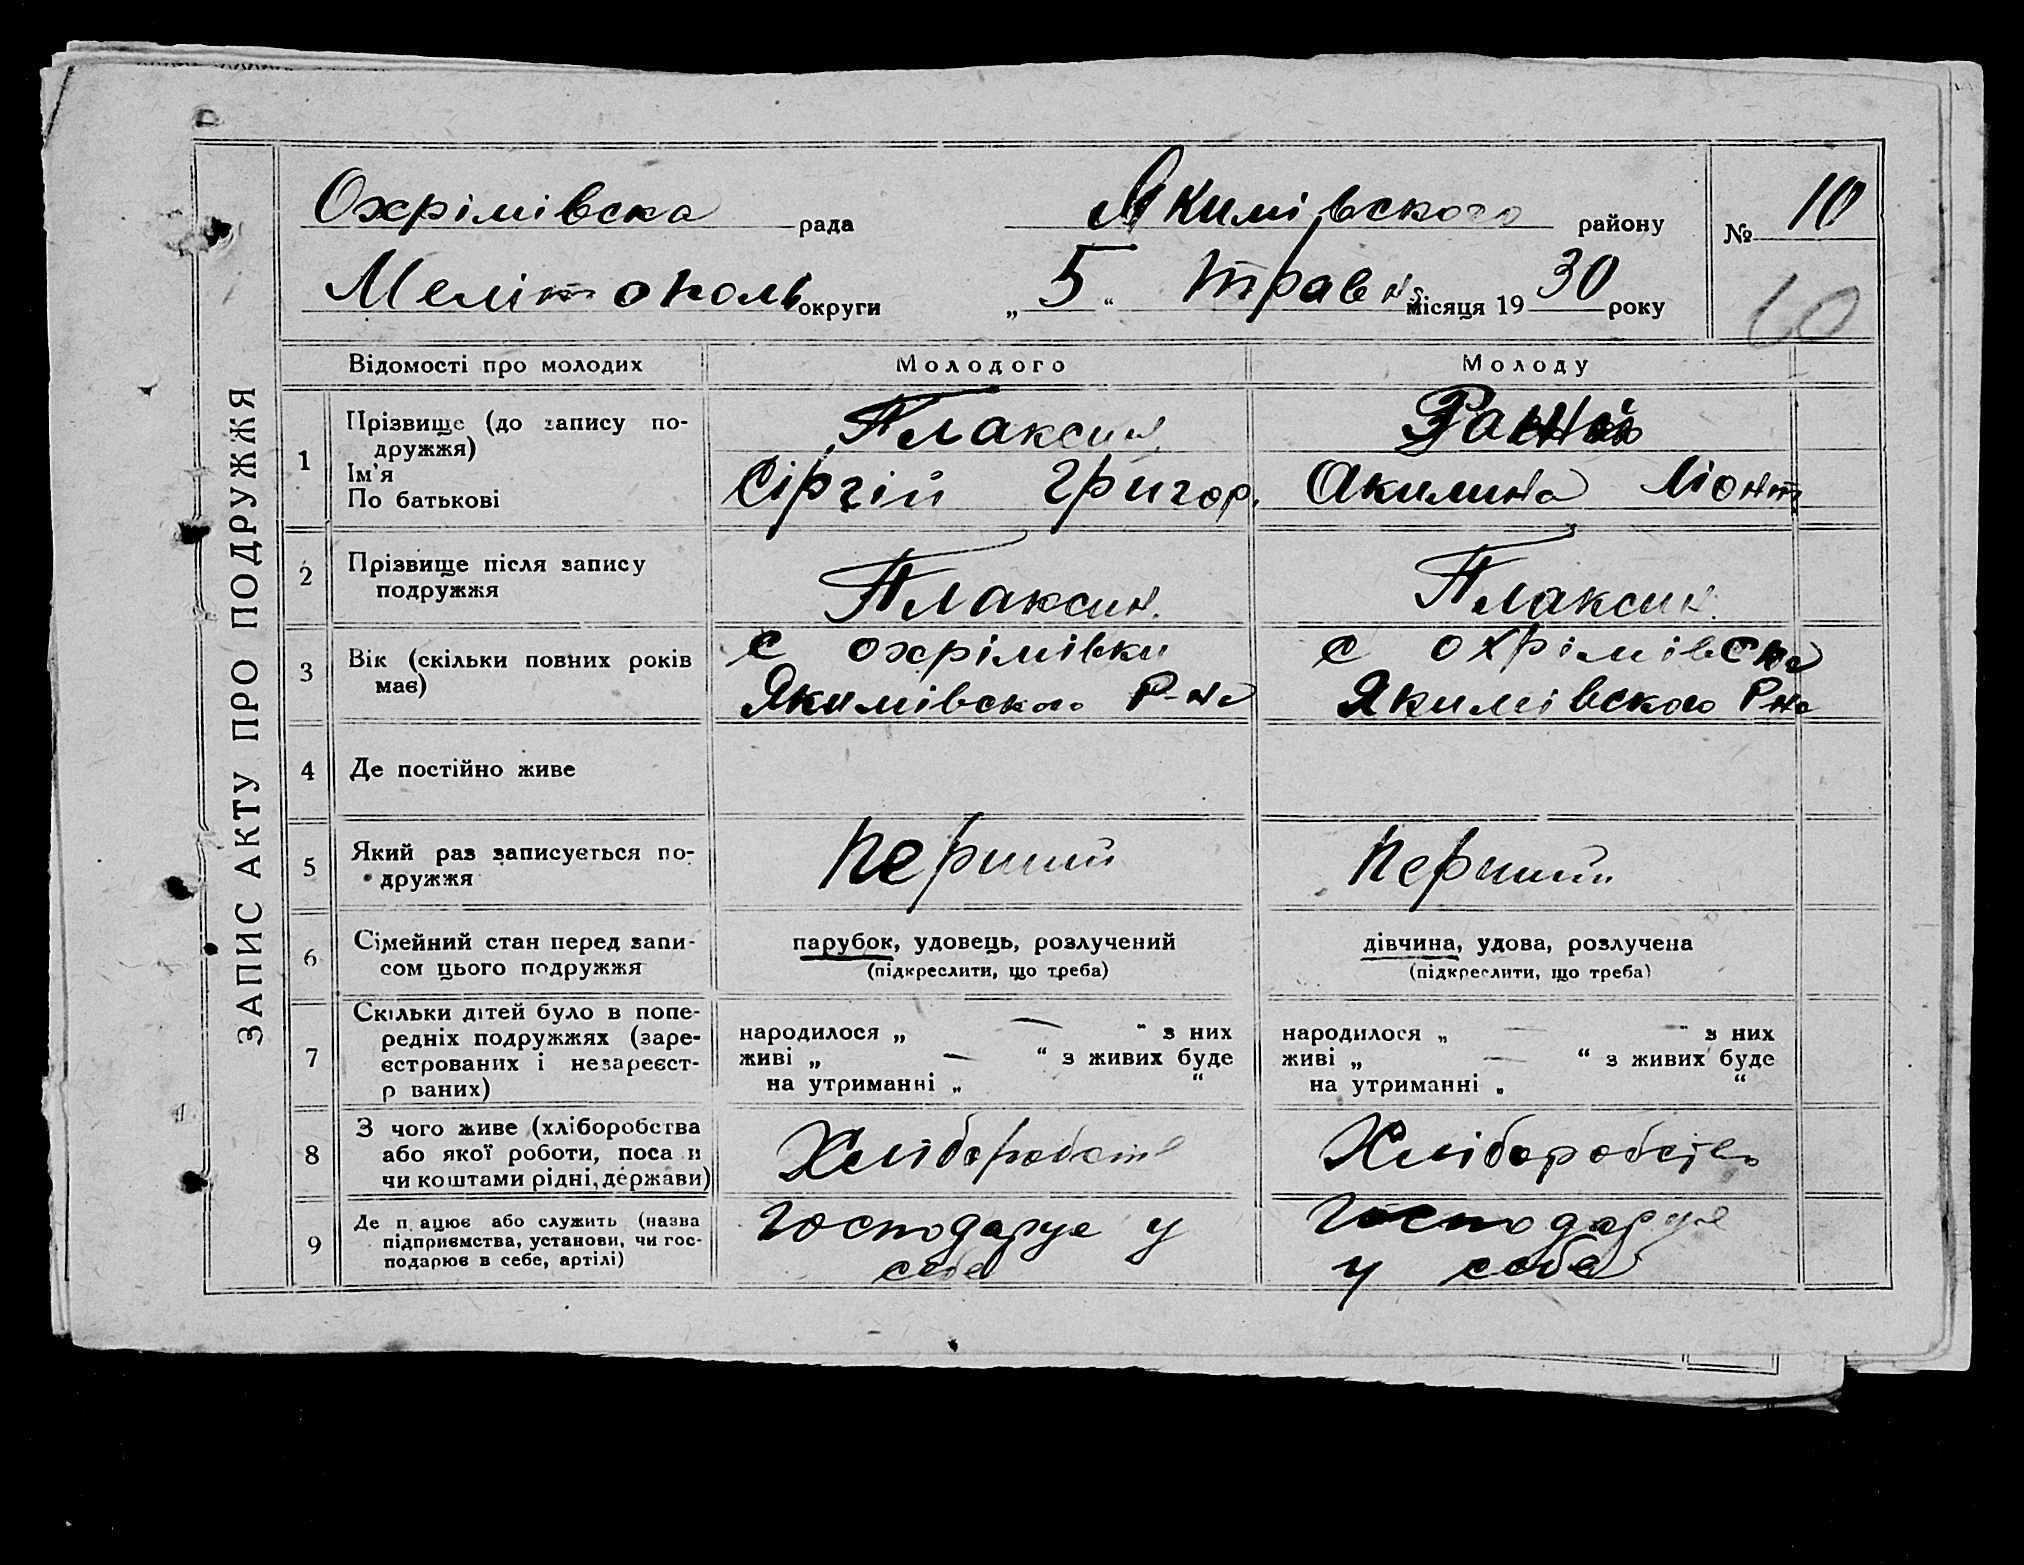 ЗАПИС АКТУ ПРО ПОДРУЖЖЯ
Охрімівска рада Якимівского району № 10
Мелітополь округи „ 5 “ травня місяця 19 30 року
10
Відомості про молодих Молодого Молоду
1 Прізвище (до запису по-
дружжя)
Ім'я
По батькові
Плаксин
Сіргій Григор.
Акилина Ліонт
2 Прізвище після запису
подружжя
Плаксин.
Плаксин.
3 Вік (скільки повних років
має)
с охрімівки
Якимівского Р-на
с охрімівска
Якимівского Р на
4 Де постійно живе
5 Який раз записується по-
дружжя
перший
перший
6 Сімейний стан перед запи-
сом цього подружжя
парубок, удовець, розлучений
(підкреслити, що треба)
дівчина, удова, розлучена
(підкреслити, що треба)
7 Скільки дітей було в попе-
редніх подружжях (заре-
єстрованих і незареєст-
р ваних)
народилося „ — “ з них
живі „ — “ з живих буде
на утриманні „ “
народилося „ — “ з них
живі „ — “ з живих буде
на утриманні „ “
8 З чого живе (хліборобства
або якої роботи, поса и
чи коштами рідні, держави)
Хліборобств
Хліборобство
9 Де п ацює або служить (назва
підприємства, установи, чи гос-
подарює в себе, артілі)
Господарує у
себе
Господарує
у себе